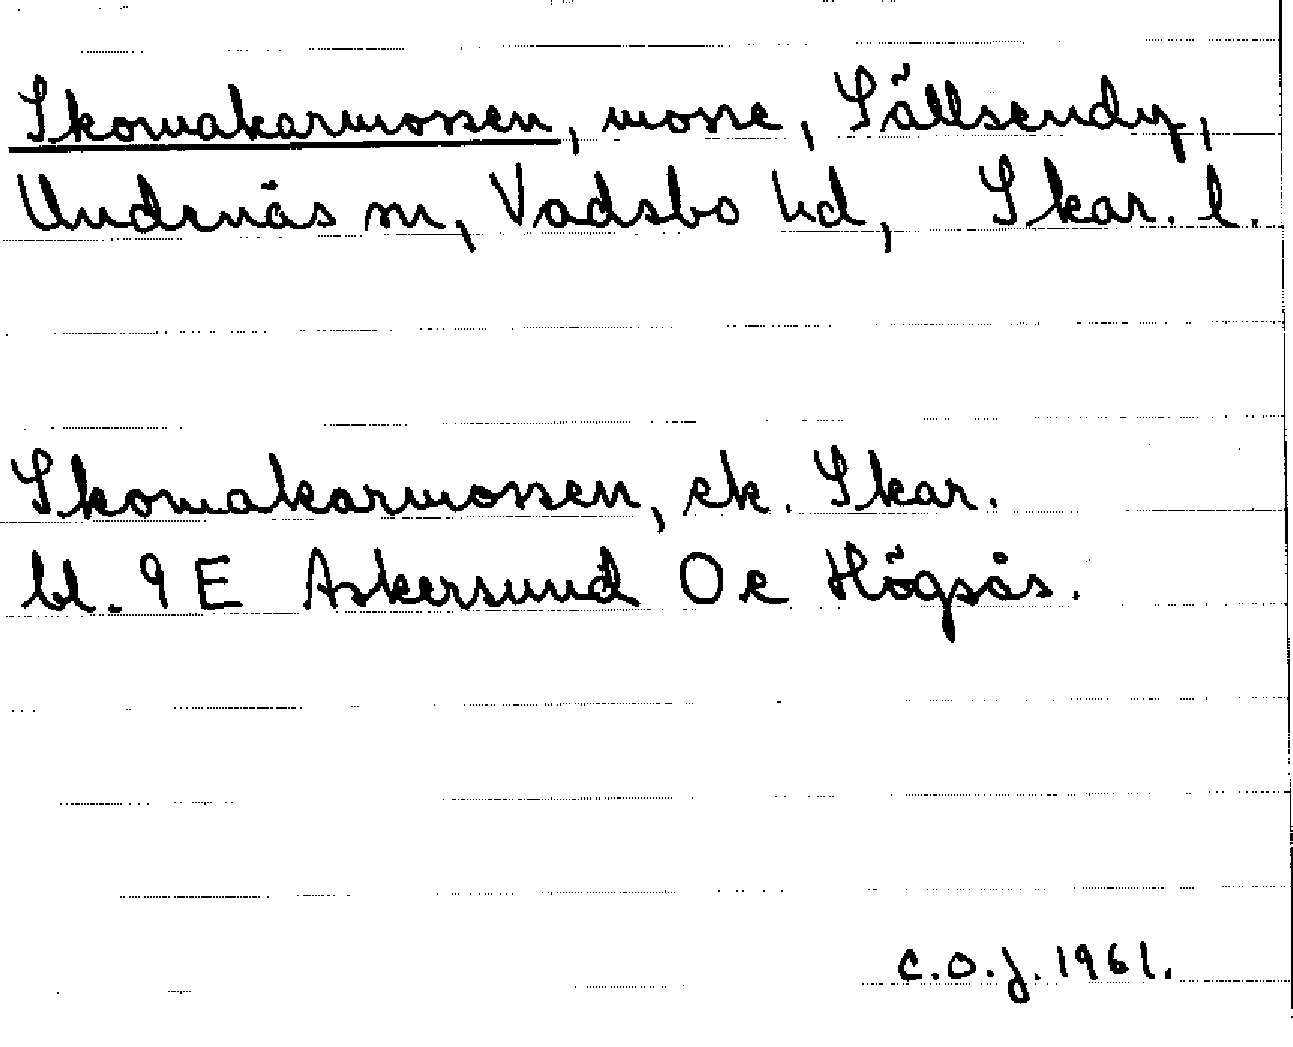 Skomakarmossen, mosse, Sällsendy,
Undenäs sn, Vadsbo hd, Skar. l.
Skomakarmossen, ek. Skar.
bl. 9 E Askersund O c Högsås.
C.O.J. 1961.